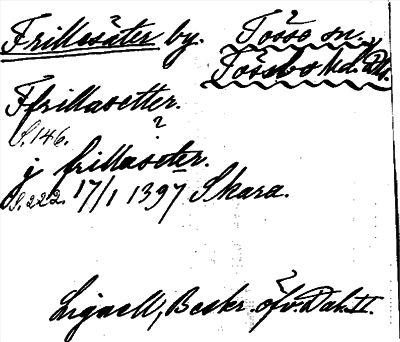 Frillesäter by. Tösse sn.
Tössbo hd.
Ffrillasetter.
S. 146.
?
j frillaseter.
S. 222. 17/1 1397 Skara.
Lignell, Beskr. öfv. Dal. II.